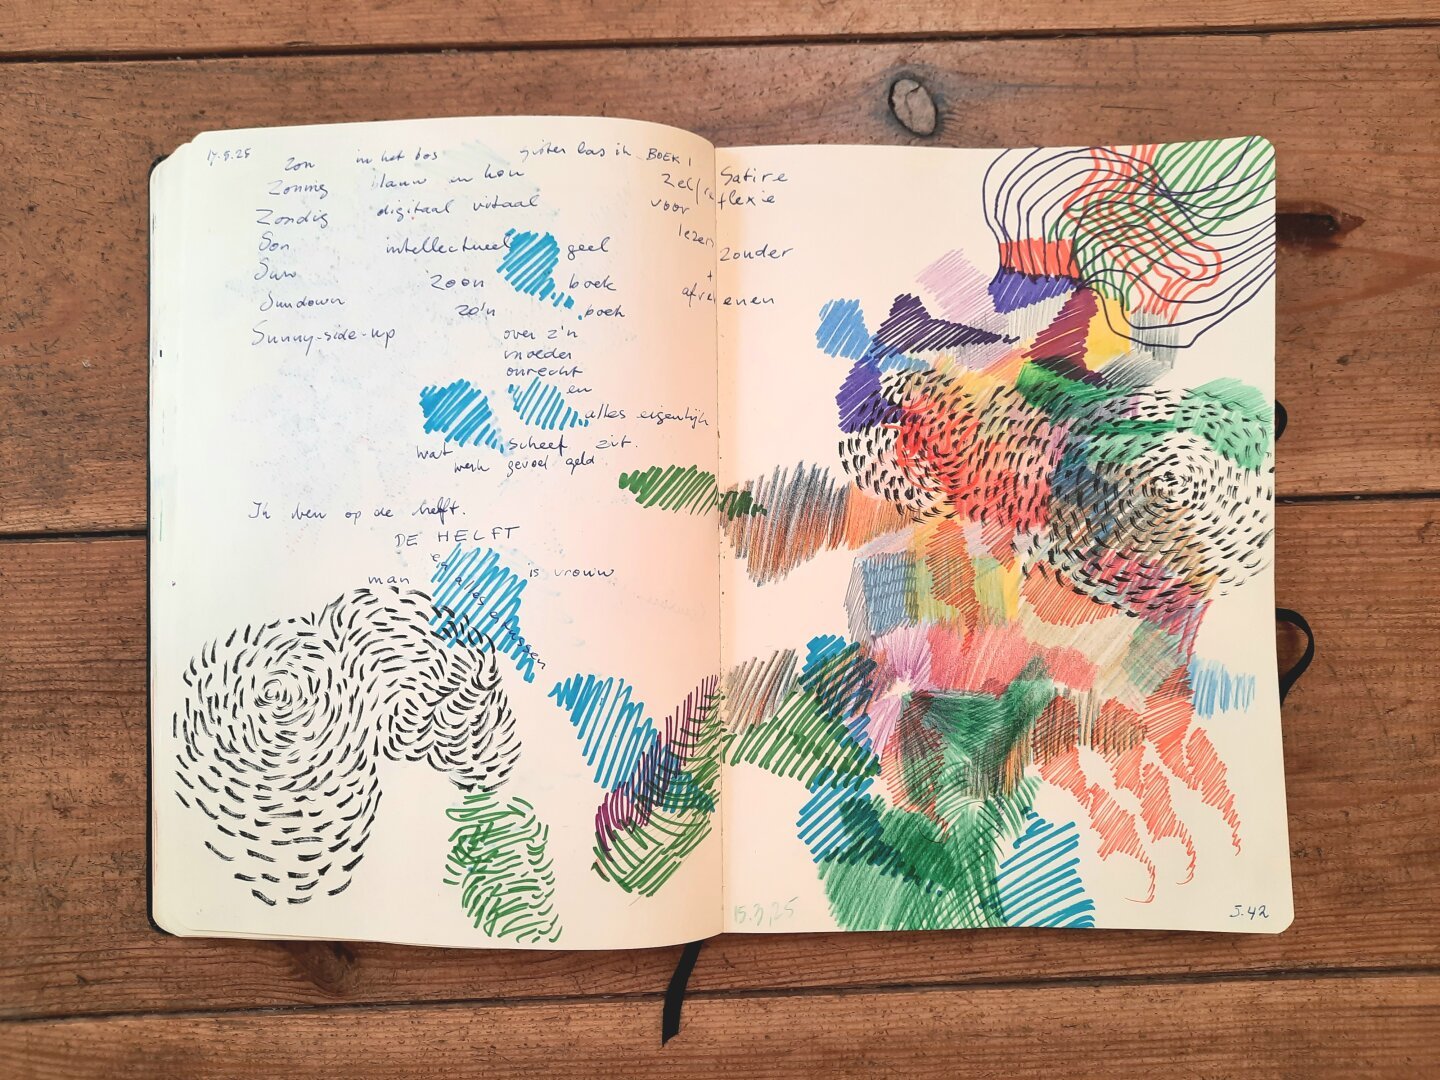 17.5.25
zon in het bos gisteren las ik BOEK 1
Zonnig blauw en kou Zelfreflexie Satire
Zondig digitaal vitaal voor
Son intellectueel geel lezen zonder
Sun zoon boek +
Sundown zo'n boek afrekenen
Sunny-side-up over z'n
moeder
onrecht
en
alles eigenlijk
wat scheef zit.
werk gevoel geld
Ik ben op de helft.
DE HELFT
man is vrouw
en alles ertussen
15.3.25
5.42